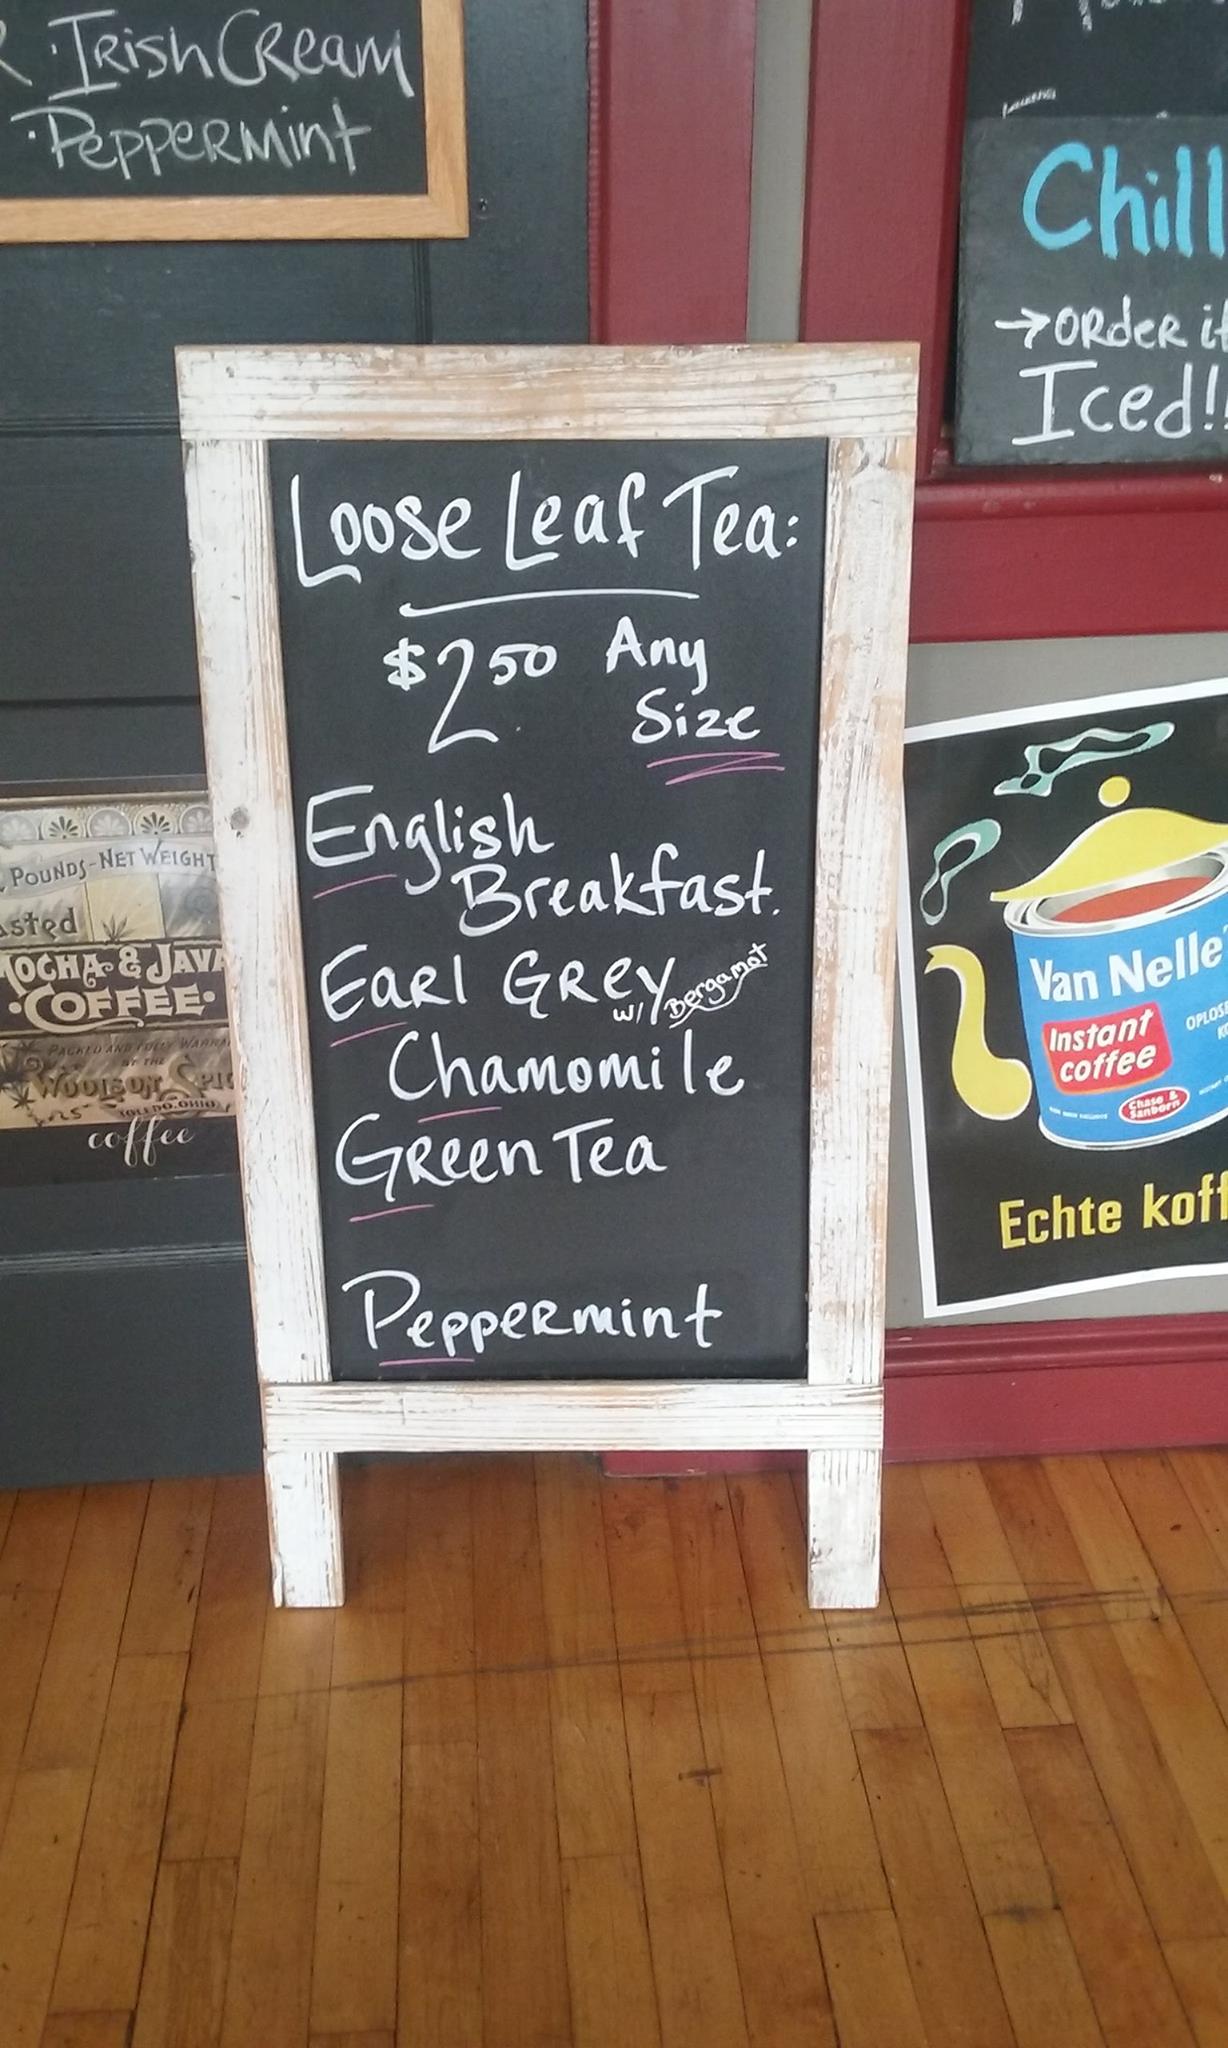 · Irish Cream
· Peppermint
Chill
→ Order it
Iced!!
Loose Leaf Tea:
$2.50 Any
Size
English
Breakfast.
Earl Grey w/ Bergamot
Chamomile
Green Tea
Peppermint
Pounds - Net Weight
Mocha & Java
· Coffee ·
Packed and Fully
by the
Woolson Spic
25
Toledo, Ohio
coffee
Van Nelle's
Instant
coffee
Chase &
Sanborn
Echte koff